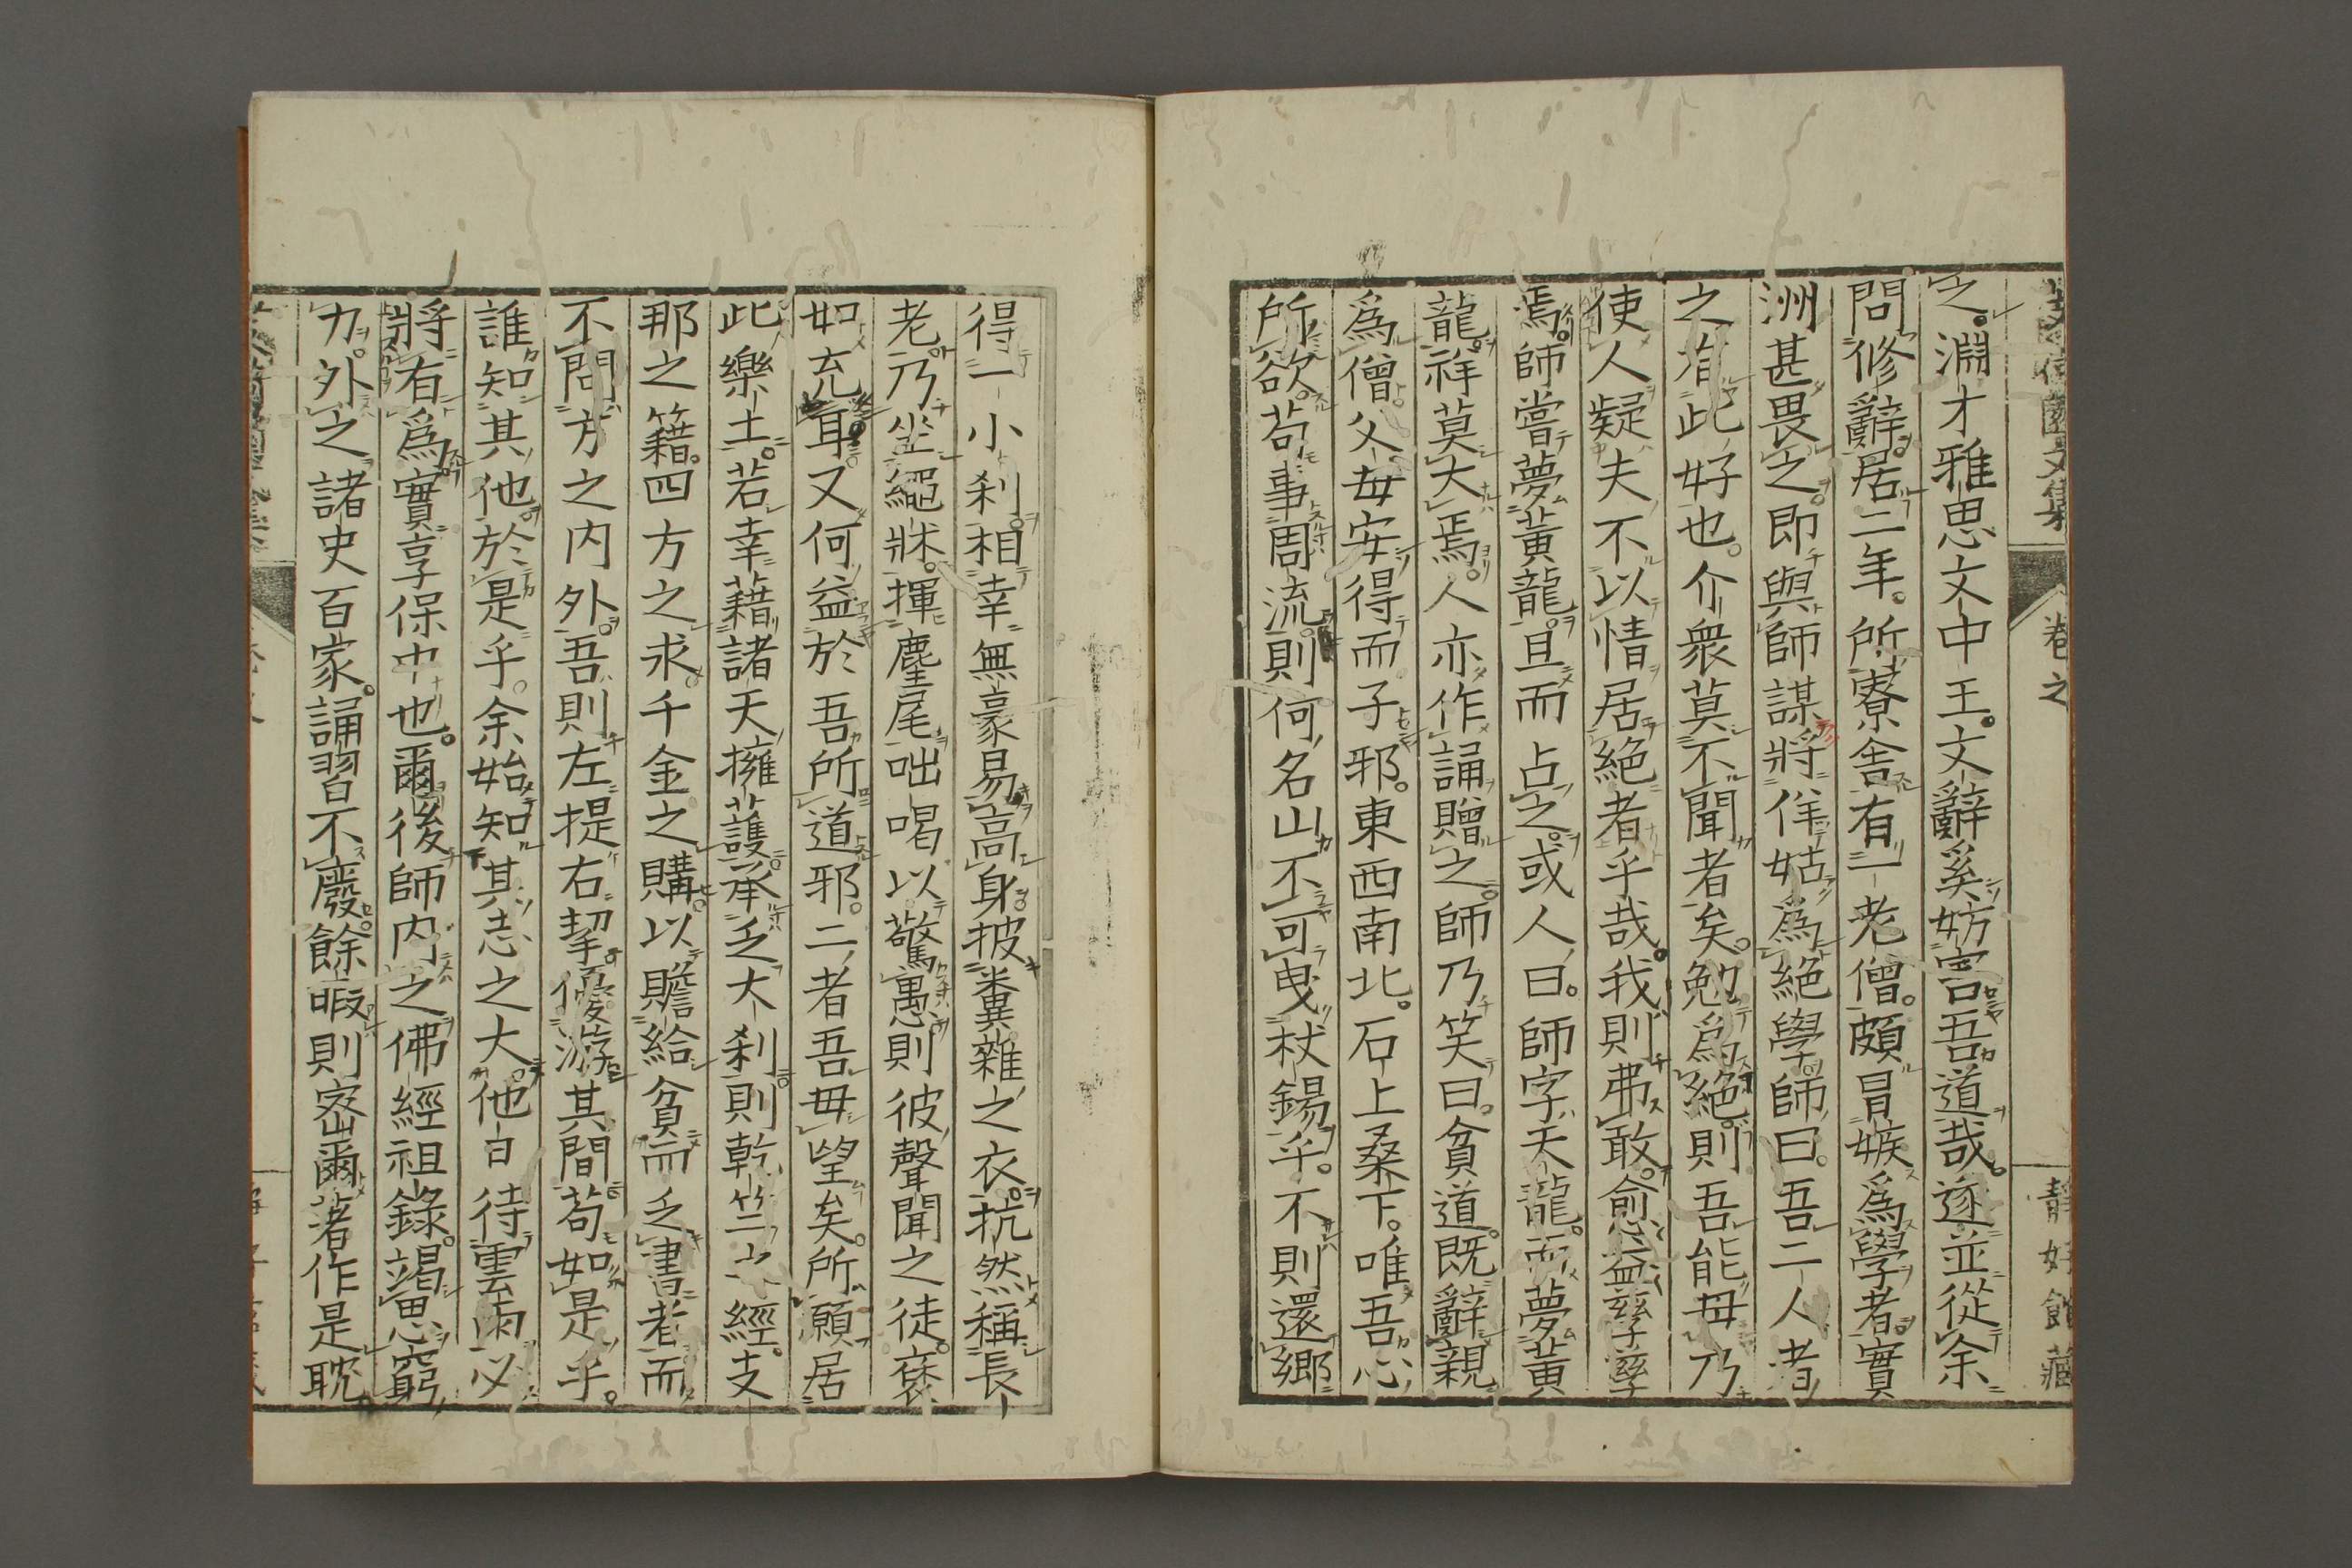 卷之
靜好館藏
之。淵才雅思文中王。文辭奚妨害吾道哉。遂並從余
問修辭。居二年。所寮舍有一老僧。頗冒嫉爲學者。實
洲甚畏之。即與師謀將佯姑爲絕學。師曰。吾二人者
之有此好也。介衆莫不聞者矣。勉爲絕。則吾能毋乃
使人疑夫不以情居絕者乎哉。我則弗敢。愈益孳孳
焉。師嘗夢黃龍。旦而占之。或人曰。師字天龍。而夢黃
龍。祥莫大焉。人亦作誦贈之。師乃笑曰。貧道。既辭親
爲僧。父母安得而子邪。東西南北。石上桑下。唯吾心
所欲。苟事周流。則何名山不可曳杖錫乎。不則還鄉
得一小刹。相幸無豪易高。身披糞雜之衣。抗然稱長
老。乃坐繩牀。揮麈尾。咄喝以驚愚。則彼聲聞之徒。褎
如充耳。又何益於吾所道邪。二者吾毋望矣。所願居
此樂土。若幸藉諸天擁護。承乏大刹。則乾竺之經。支
那之籍。四方之求。千金之購。以贍給貧而乏書者。而
不問方之内外。吾則左提右挈。優游其間。苟如是乎。
誰知其他於是乎。余始知其志之大。他日待雲雨必
將有爲。實享保中也。爾後師内之佛經祖錄。竭思窮
力。外之諸史百家。誦習不廢。餘暇則密爾著作是耽